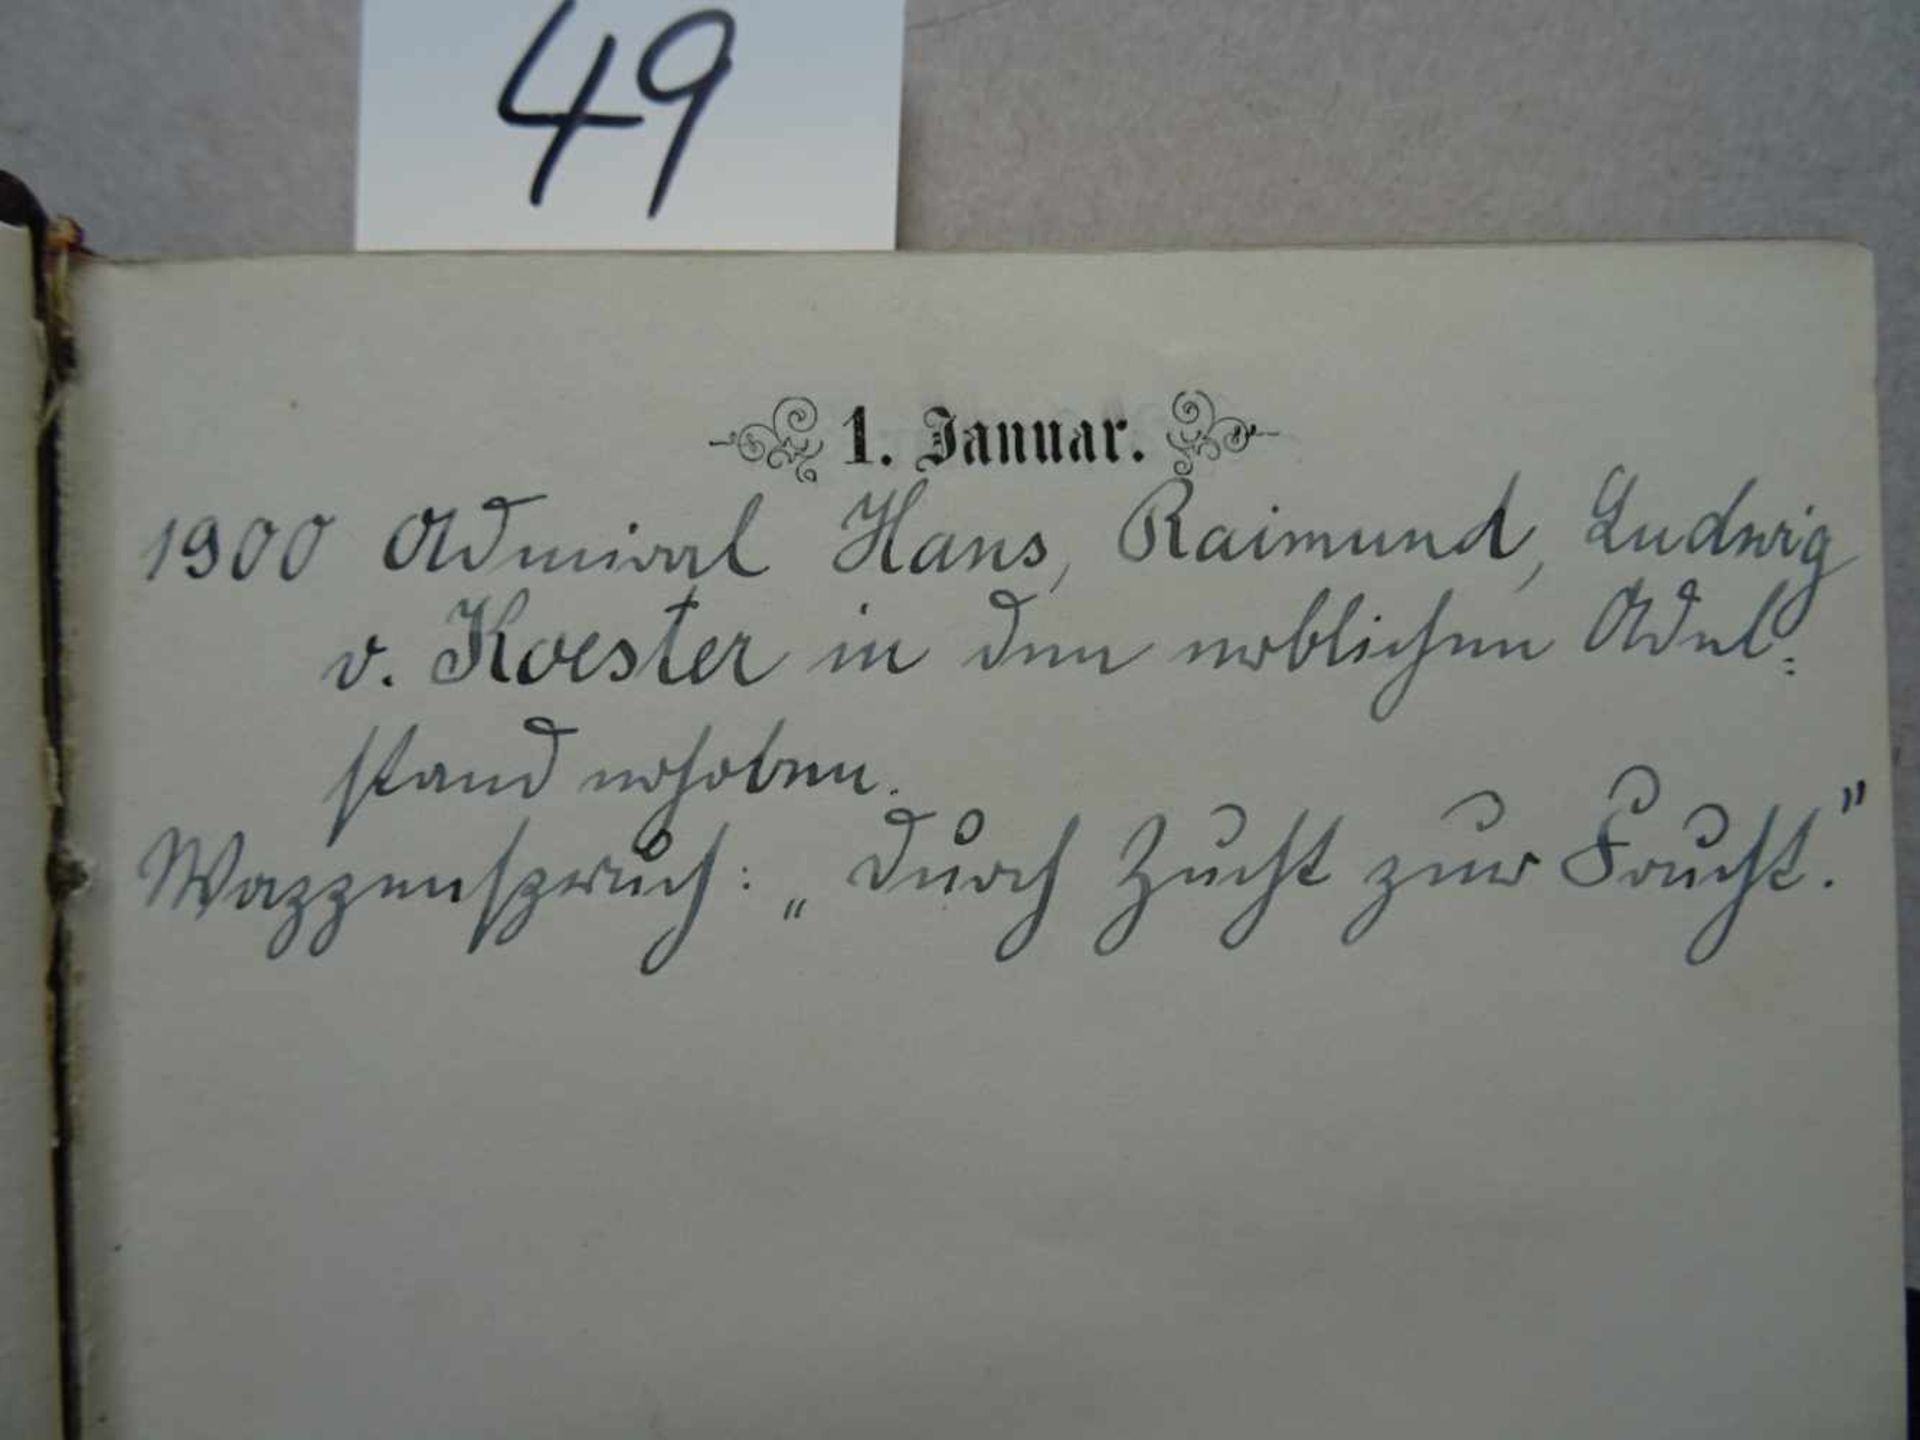 49
1. Januar.
1900 Admiral Hans, Raimund, Ludwig
v. Koester in den erblichen Adel-
stand erhoben.
Wappenspruch: „Durch Zucht zur Frucht.“